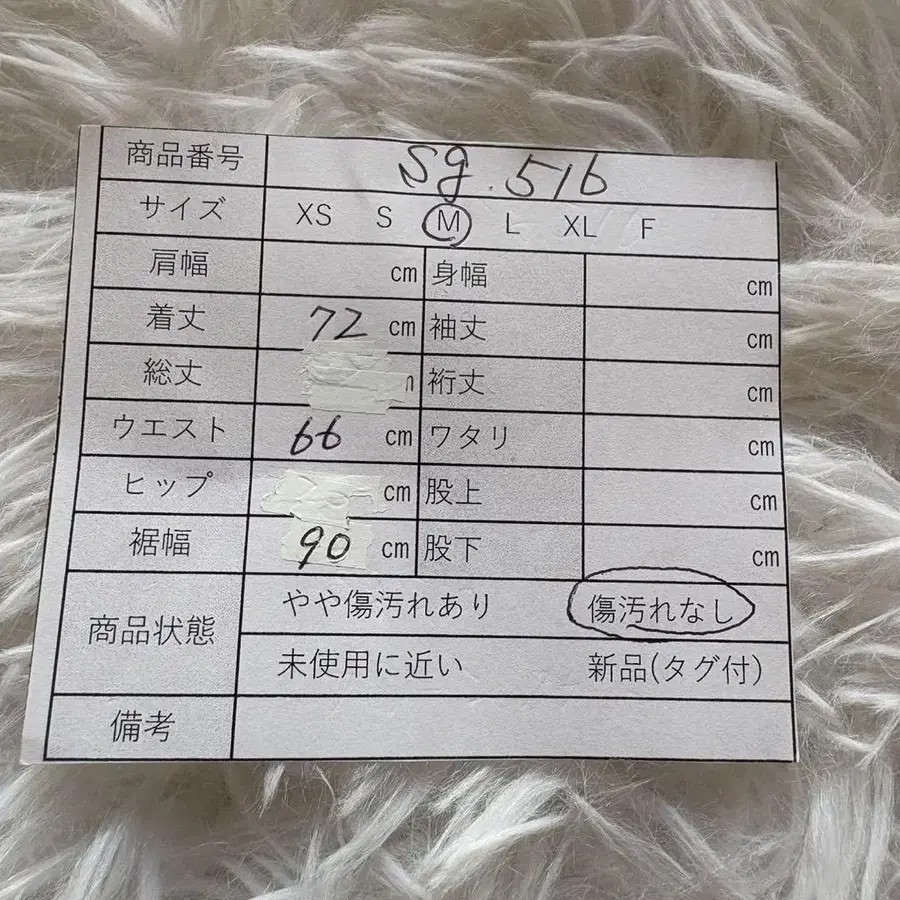 商品番号 sg.516
サイズ XS S M L XL F
肩幅 cm 身幅 cm
着丈 72 cm 袖丈 cm
総丈 裄丈 cm
ウエスト 66 cm ワタリ cm
ヒップ cm 股上 cm
裾幅 90 cm 股下 cm
商品状態 やや傷汚れあり 傷汚れなし
未使用に近い 新品(タグ付)
備考